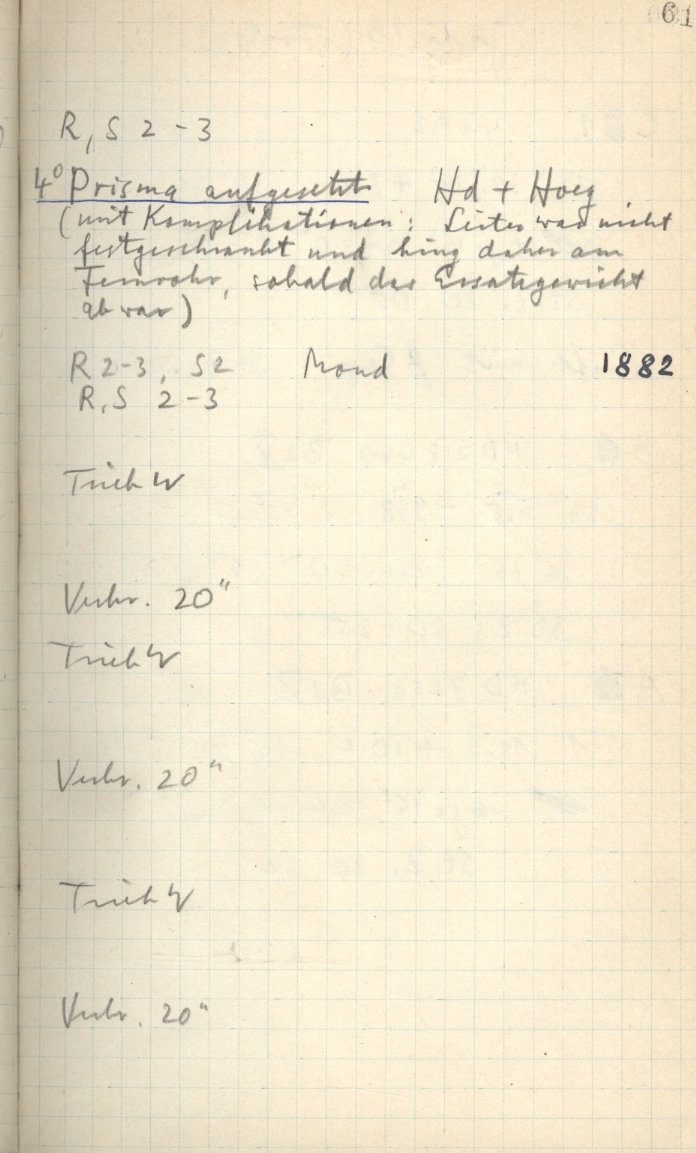 61
R, S 2-3
4° Prisma aufgesetzt Hd + Hoeg
(mit Komplikationen: Leiter war nicht
festgeschraubt und hing daher am
Fernrohr, sobald das Ersatzgewicht
ab war)
R 2-3, S2 Mond 1882
R, S 2-3
Trieb
Verbr. 20"
Trieb
Verbr. 20"
Trieb
Verbr. 20"